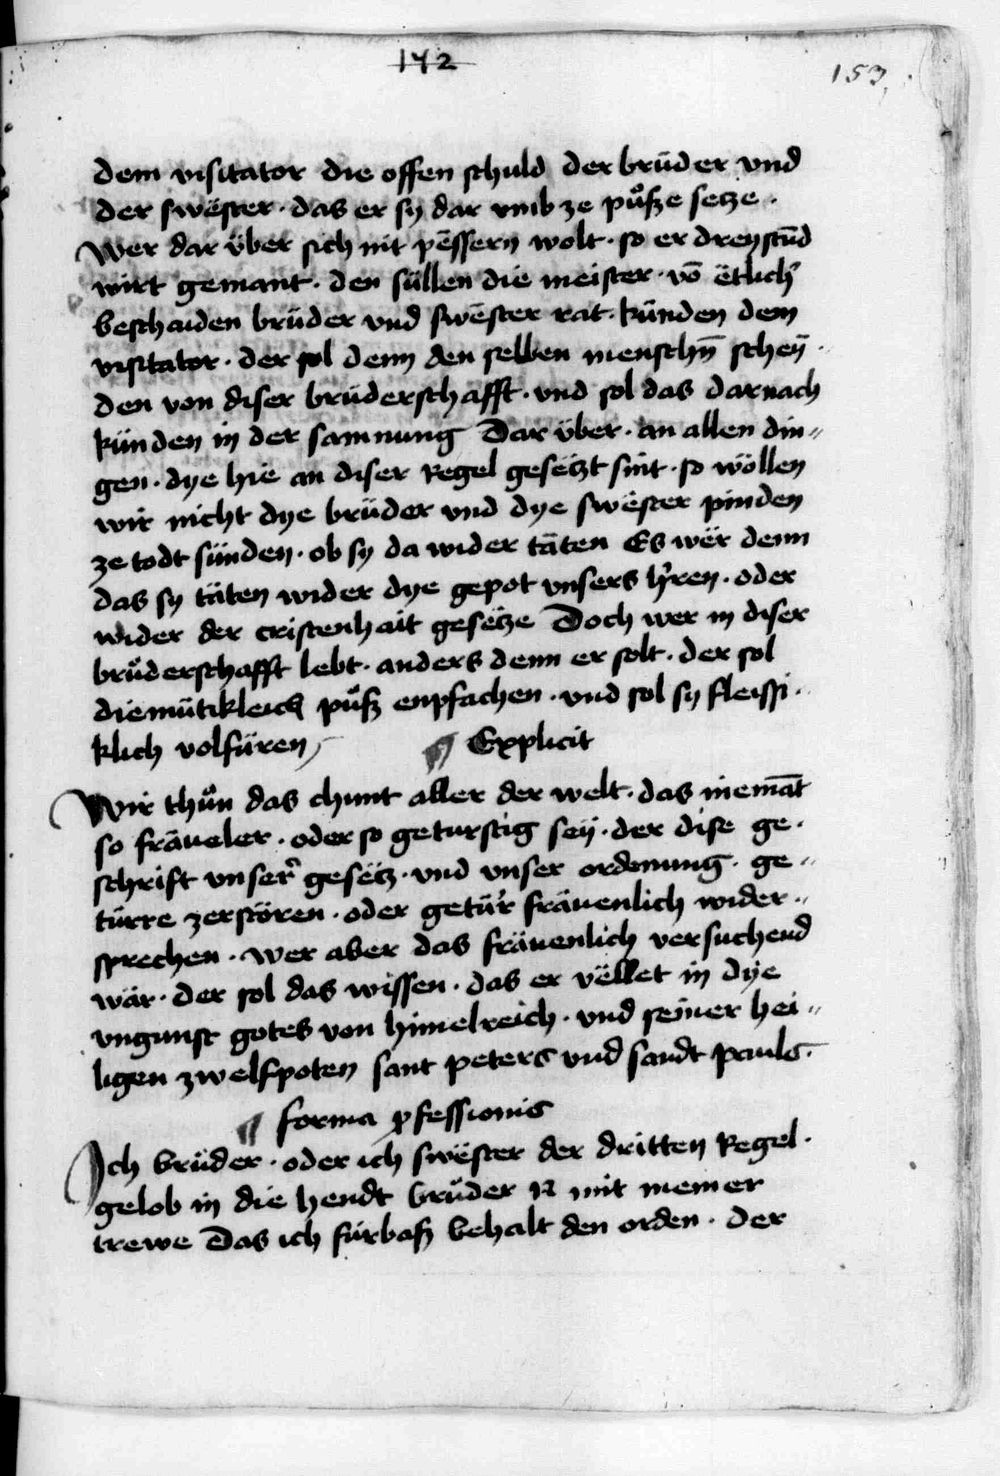 142
153
dem visitator die offen schuld der brüder vnd
der swëster · das er sy dar vmb ze půſze setze ·
Wer dar über sich nit pëssern wolt · so er dreystūd
wirt gemant · den süllen die meister · vō ëtlich̓
beschaiden brüder vnd swëster rat · künden dem
visitator · der sol denn den selben menschn̄ scheӱ ·
den von diser brüderschafft · vnd sol das darnach
künden in der samnung Dar über · an allen din〃
gen · dye hie an diser Regel gesëtzt sint · so wöllen
wir nicht dye brüder vnd dye swëster pinden
ze todt sünden · ob sy da wider täten Es wër denn
das sy täten wider dye gepot vnsers h̓ren · oder
wider der cristenhait gesëtze Doch wer in diser
brůderschafft lebt · anders denn er solt · der sol
diemütikleich půſz enpfachen · vnd sol sy fleissi ·
klich volfüren
¶ Explicit
Wir thůn das chunt aller der welt · das niemāt
so fräueler · oder so geturstig seӱ · der dise ge ·
schrift vnser̓ gesëtz · vnd vnser ordenung · ge〃
türre zerstören · oder getür̓ fräuenlich wider〃
sprechen · wer aber das fräuenlich versuchend
wär · der sol das wissen · das er vëllet in dӱe
vngunst gotes von himelreich · vnd seiner hei〃
ligen zwelfpoten sant peters vnd sandt pauls ·
¶ forma ꝓfessionis
Ich brüder · oder ich swëster der dritten Regel ·
gelob in die hendt brůder N mit meiner
trewe Das ich fürbaſz behalt den orden · der